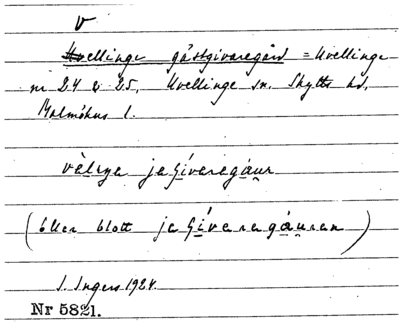 V
Hvellinge gästgivaregård = Hvellinge
nr 24 & 25, Hvellinge sn. Skytts hd,
Malmöhus l.
vèlıŋa jaʃíveregáur
(eller blott jeʃíveregáuren)
I. Ingers 1924.
Nr 5821.